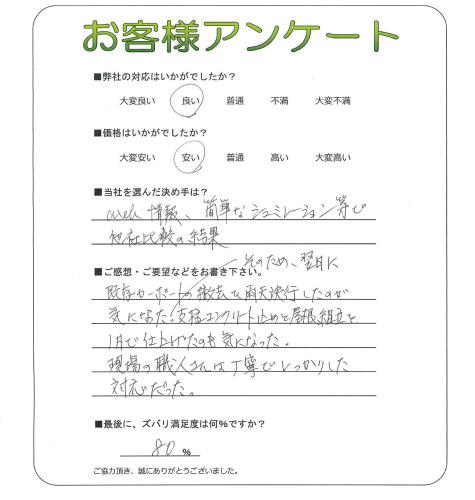 お客様アンケート
■弊社の対応はいかがでしたか?
大変良い 良い 普通 不満 大変不満
■価格はいかがでしたか?
大変安い 安い 普通 高い 大変高い
■当社を選んだ決め手は?
web 情報、簡単なシュミレーション等で
他社比較の結果
■ご感想・ご要望などをお書き下さい。
そのため、翌日に
既存カーポートの撤去で雨天決行したのが
気になった。支柱コンクリート止めと屋根組立を
1日で仕上げたのも気になった。
現場の職人さんは丁寧でしっかりした
対応だった。
■最後に、ズバリ満足度は何%ですか?
80 %
ご協力頂き、誠にありがとうございました。